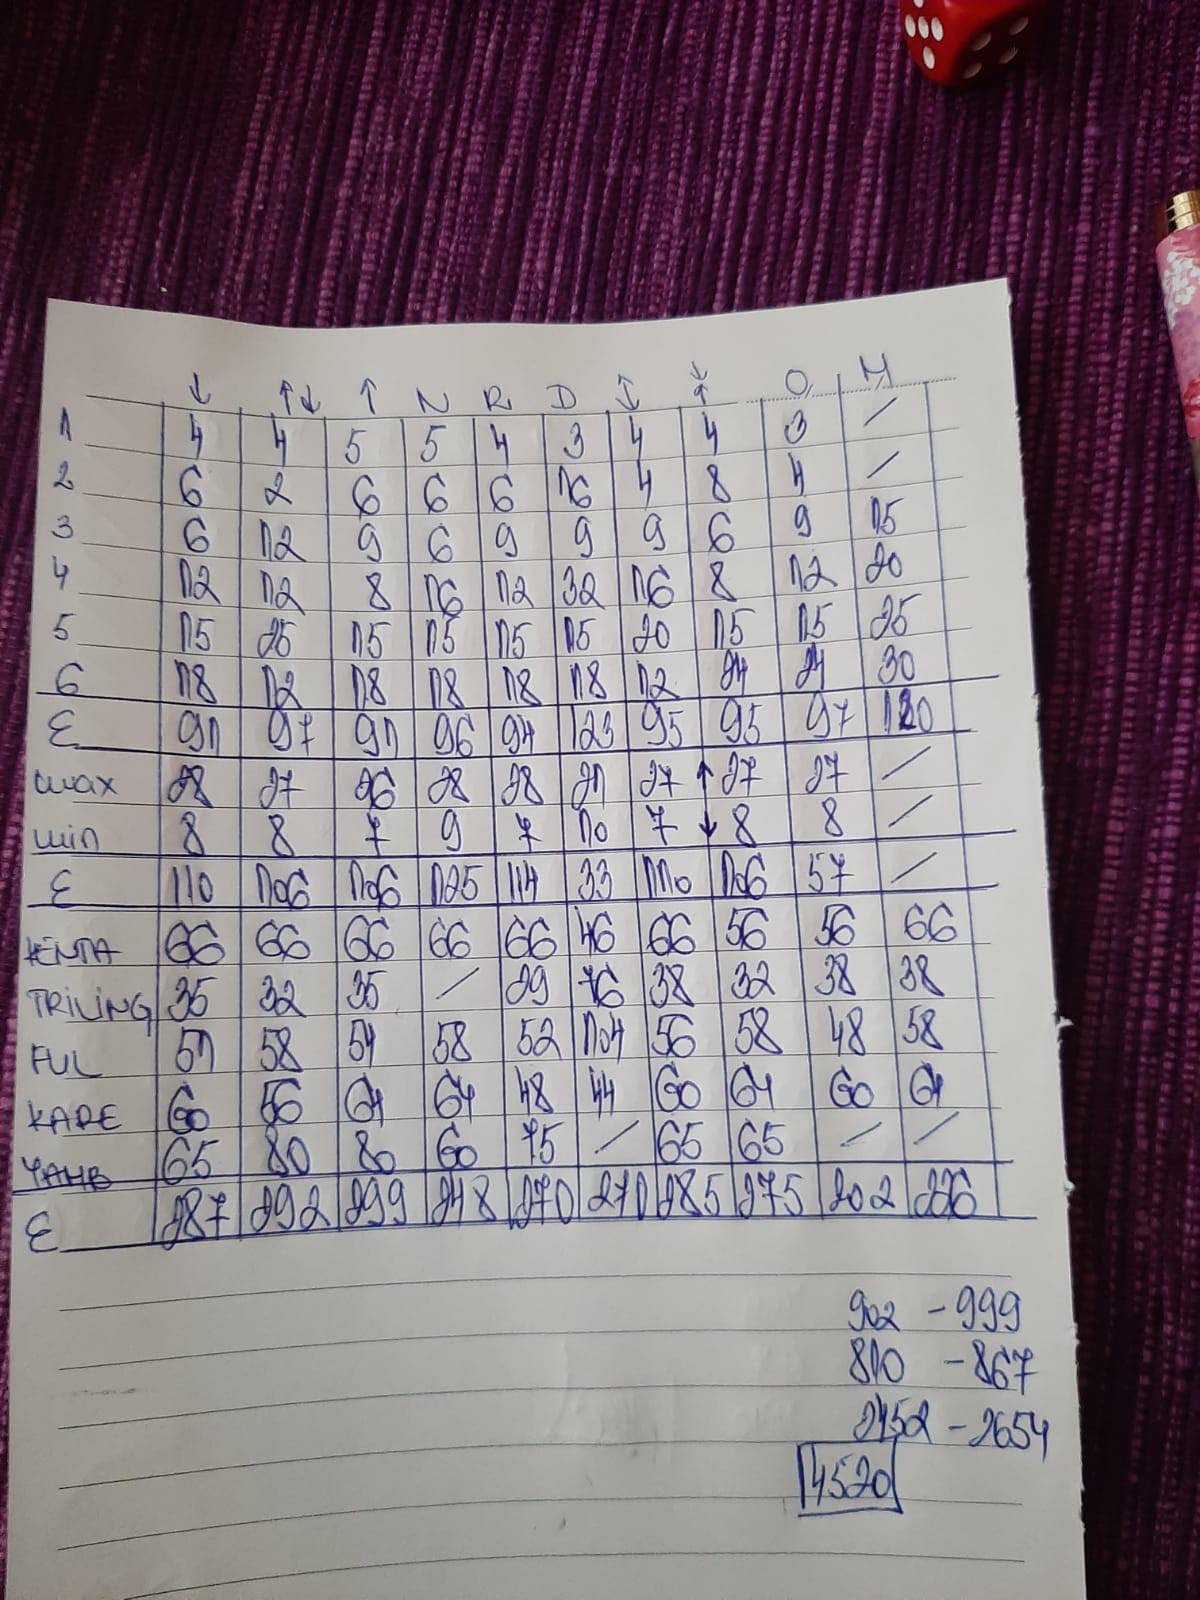 ↓ ↑↓ ↑ N R D ↕ ↓↑ O M
1 4 4 5 5 4 3 4 4 3 /
2 6 2 6 6 6 16 4 8 4 /
3 6 12 9 6 9 9 9 6 9 15
4 12 12 8 16 12 32 16 8 12 20
5 15 25 15 15 15 15 20 15 15 25
6 18 12 18 18 18 18 12 24 24 30
Σ 91 97 91 96 94 123 95 95 97 120
max 28 27 26 28 28 21 27 ↑ 27 27 /
min 8 8 7 9 7 10 7 ↓ 8 8 /
Σ 110 106 106 125 114 33 110 106 57 /
KENTA 66 66 66 66 66 46 66 56 56 66
TRILING 35 32 35 / 29 76 38 32 38 38
FUL 51 58 54 58 52 104 56 58 48 58
KARE 60 56 64 64 48 44 60 64 60 64
YAHB 65 80 80 60 75 / 65 65 / /
Σ 287 292 299 248 270 270 285 275 202 226
902 - 999
810 - 867
2452 - 2654
4520